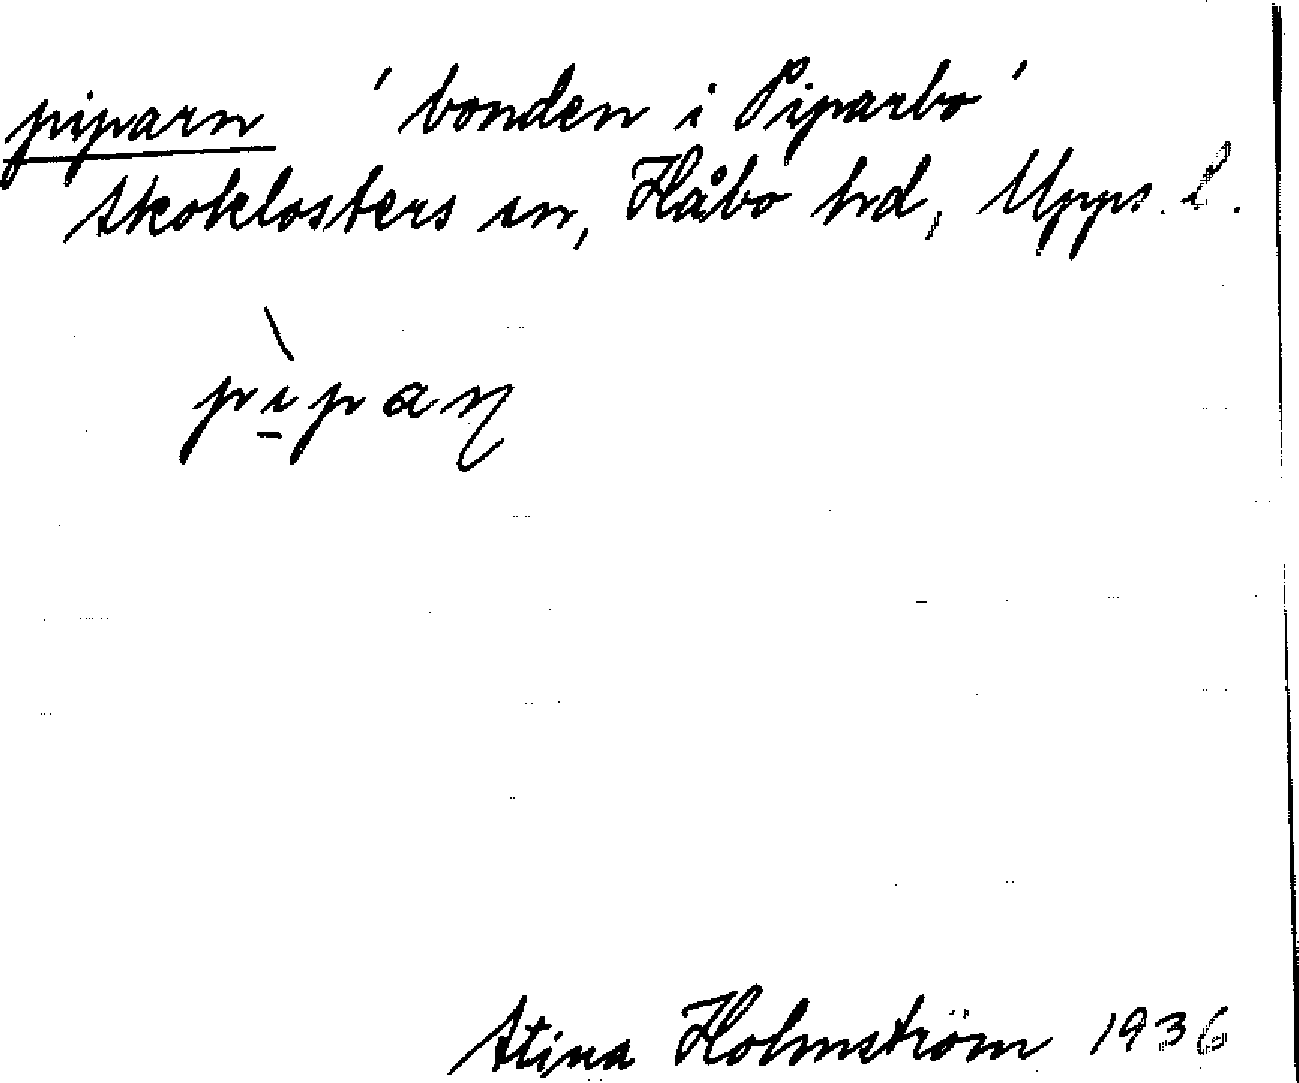 piparn 'bonden i Piparbo'
Skoklosters sn, Håbo hd, Upps. l.
pı̖̀paɳ
Stina Holmström 1936